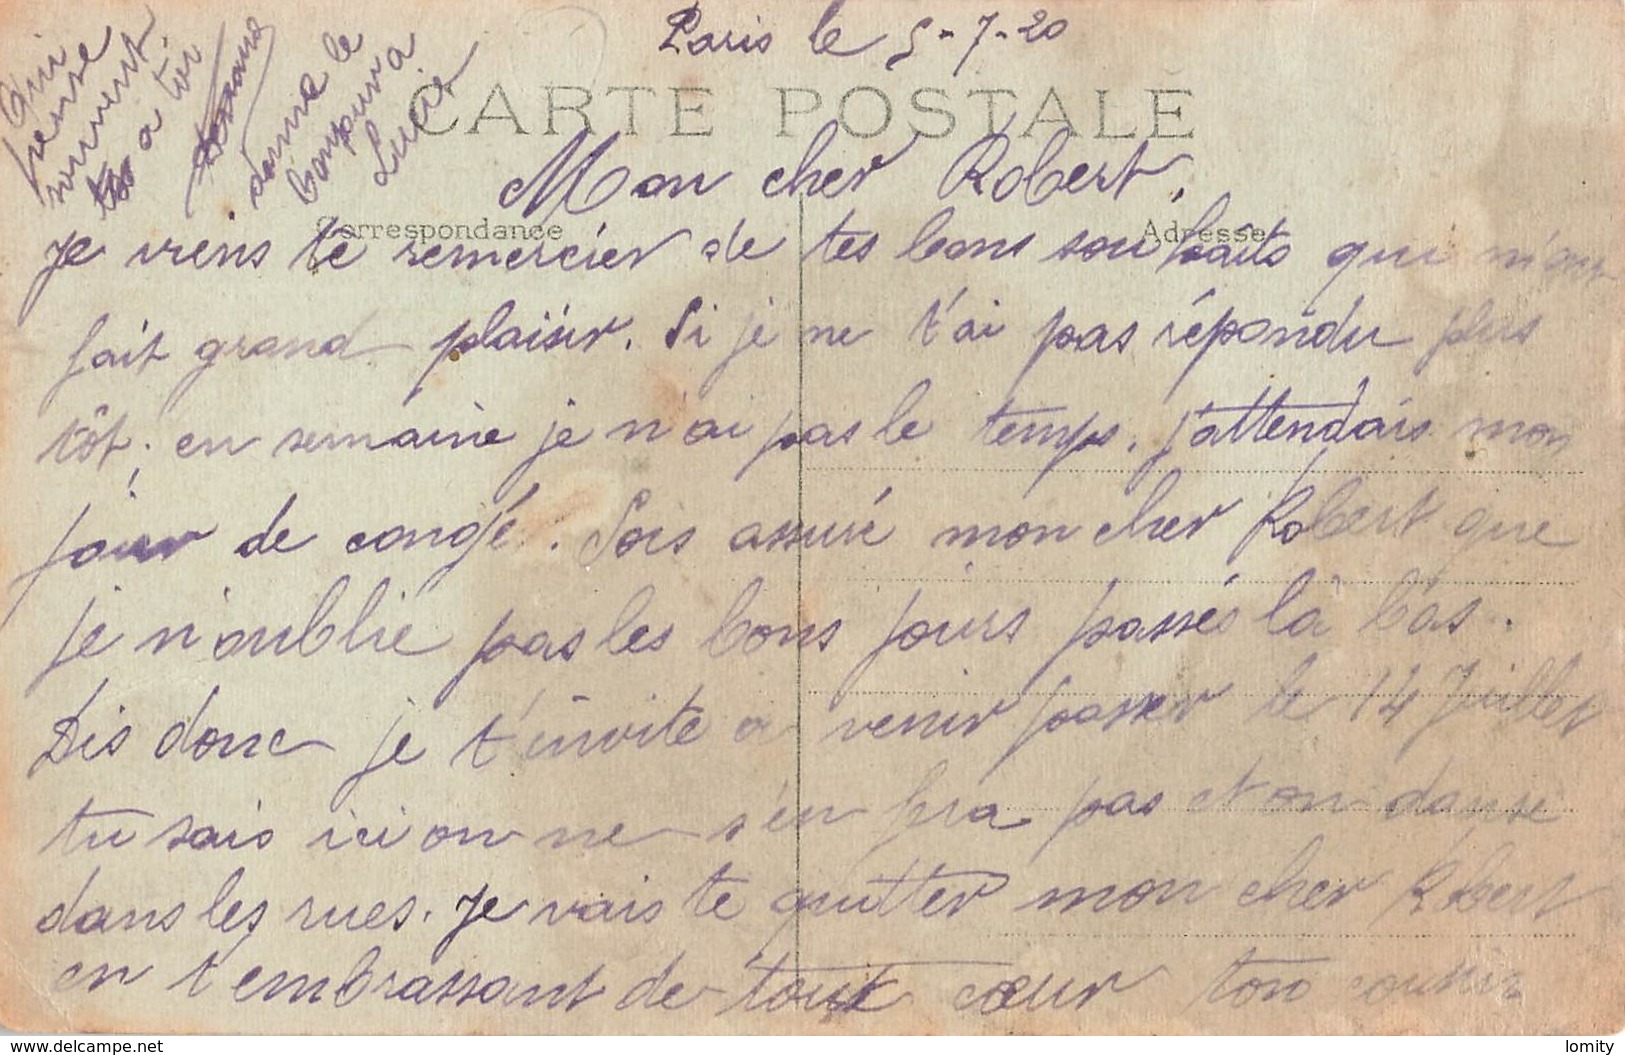 Paris le 5-7-20
CARTE POSTALE
Mon cher Robert,
Correspondance
Adresse
Je viens te remercier de tes bons souhaits qui m'ont
fait grand plaisir. Si je ne t'ai pas répondu plus
tôt; en semaine je n'ai pas le temps. j'attendais mon
jour de congé. Sois assuré mon cher Robert que
je n'oublie pas les bons jours passés là bas.
Dis donc je t'invite a venir passer le 14 Juillet
tu sais ici on ne s'en fera pas et on danse
dans les rues. Je vais te quitter mon cher Robert
en t'embrassant de tout cœur ton cousin
Qui
pense
souvent
a toi
donne le
bonjour a
Lucie
www.delcampe.net
lomity